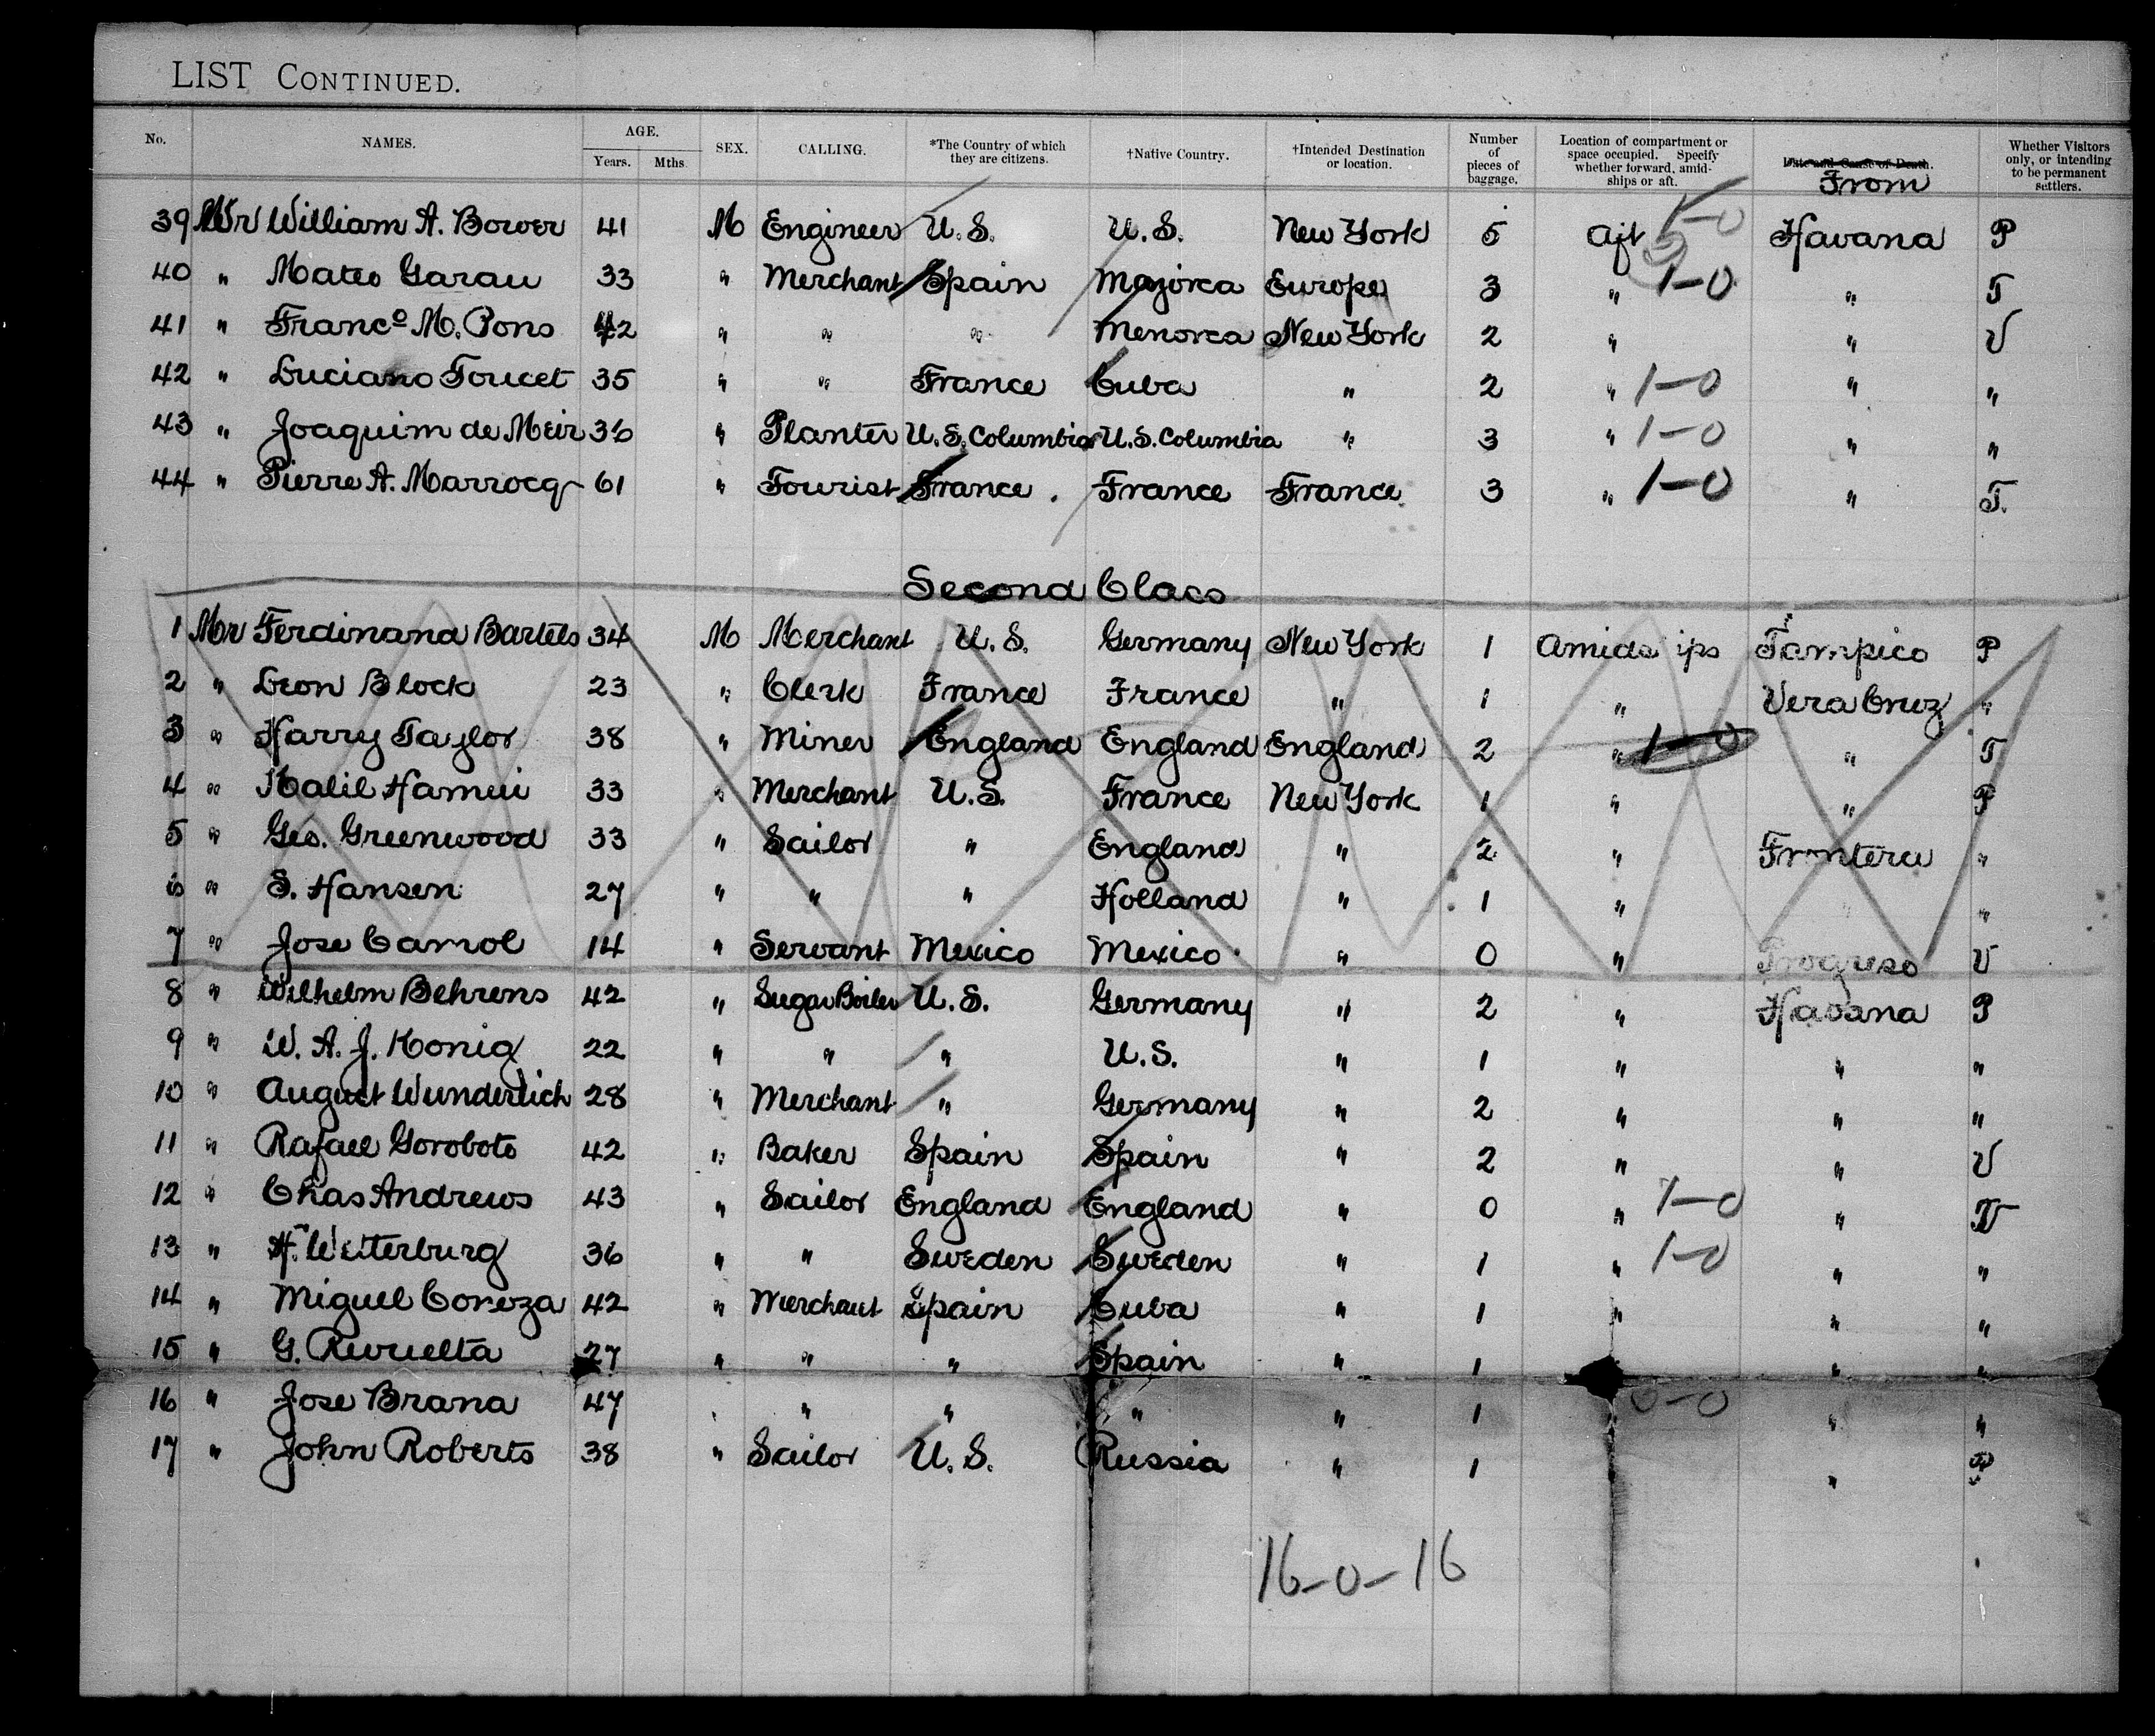 LIST CONTINUED.
No. NAMES. AGE. Years. Mths. SEX. CALLING. *The Country of which they are citizens. †Native Country. †Intended Destination or location. Number of pieces of baggage. Location of compartment or space occupied. Specify whether forward, amidships or aft. Date and Cause of Death. From Whether Visitors only, or intending to be permanent settlers.
39 Mr William A. Bower 41 M Engineer U.S. U.S. New York 5 Aft 1-0 Havana P
40 " Mateo Garau 33 " Merchant Spain Majorca Europe 3 " 1-0 " T
41 " Franco M. Pons 42 " " " Menorca New York 2 " " V
42 " Luciano Foucet 35 " " France Cuba " 2 " 1-0 " "
43 " Joaquim de Meir 36 " Planter U.S. Columbia U.S. Columbia " 3 " 1-0 " "
44 " Pierre A. Marrocq 61 " Tourist France. France France 3 " 1-0 " T.
Second Class
1 Mr Ferdinand Bartels 34 M Merchant U.S. Germany New York 1 Amids ips Tampico P
2 " Leon Block 23 " Clerk France France " 1 " Vera Cruz "
3 " Harry Taylor 38 " Miner England England England 2 " 1-0 " T
4 " Kalil Hamui 33 " Merchant U.S. France New York 1 " " P
5 " Geo. Greenwood 33 " Sailor " England " 2 " Frontera "
6 " S. Hansen 27 " " " Holland " 1 " " "
7 " Jose Camol 14 " Servant Mexico Mexico " 0 " Progreso V
8 " Wilhelm Behrens 42 " Sugar Boiler U.S. Germany " 2 " Havana P
9 " W. A. J. Konig 22 " " " U.S. " 1 " " "
10 " August Wunderlich 28 " Merchant " Germany " 2 " " "
11 " Rafael Goroboto 42 " Baker Spain Spain " 2 " " V
12 " Chas Andrews 43 " Sailor England England " 0 " 1-0 " V
13 " H. Weiterburg 36 " " Sweden Sweden " 1 " 1-0 " "
14 " Miguel Coneza 42 " Merchant Spain Cuba " 1 " " "
15 " G. Revuelta 27 " " " Spain " 1 " "
16 " Jose Brana 47 " " " " 1 0-0 " "
17 " John Roberts 38 " Sailor U.S. Russia " 1 " P
16-0-16